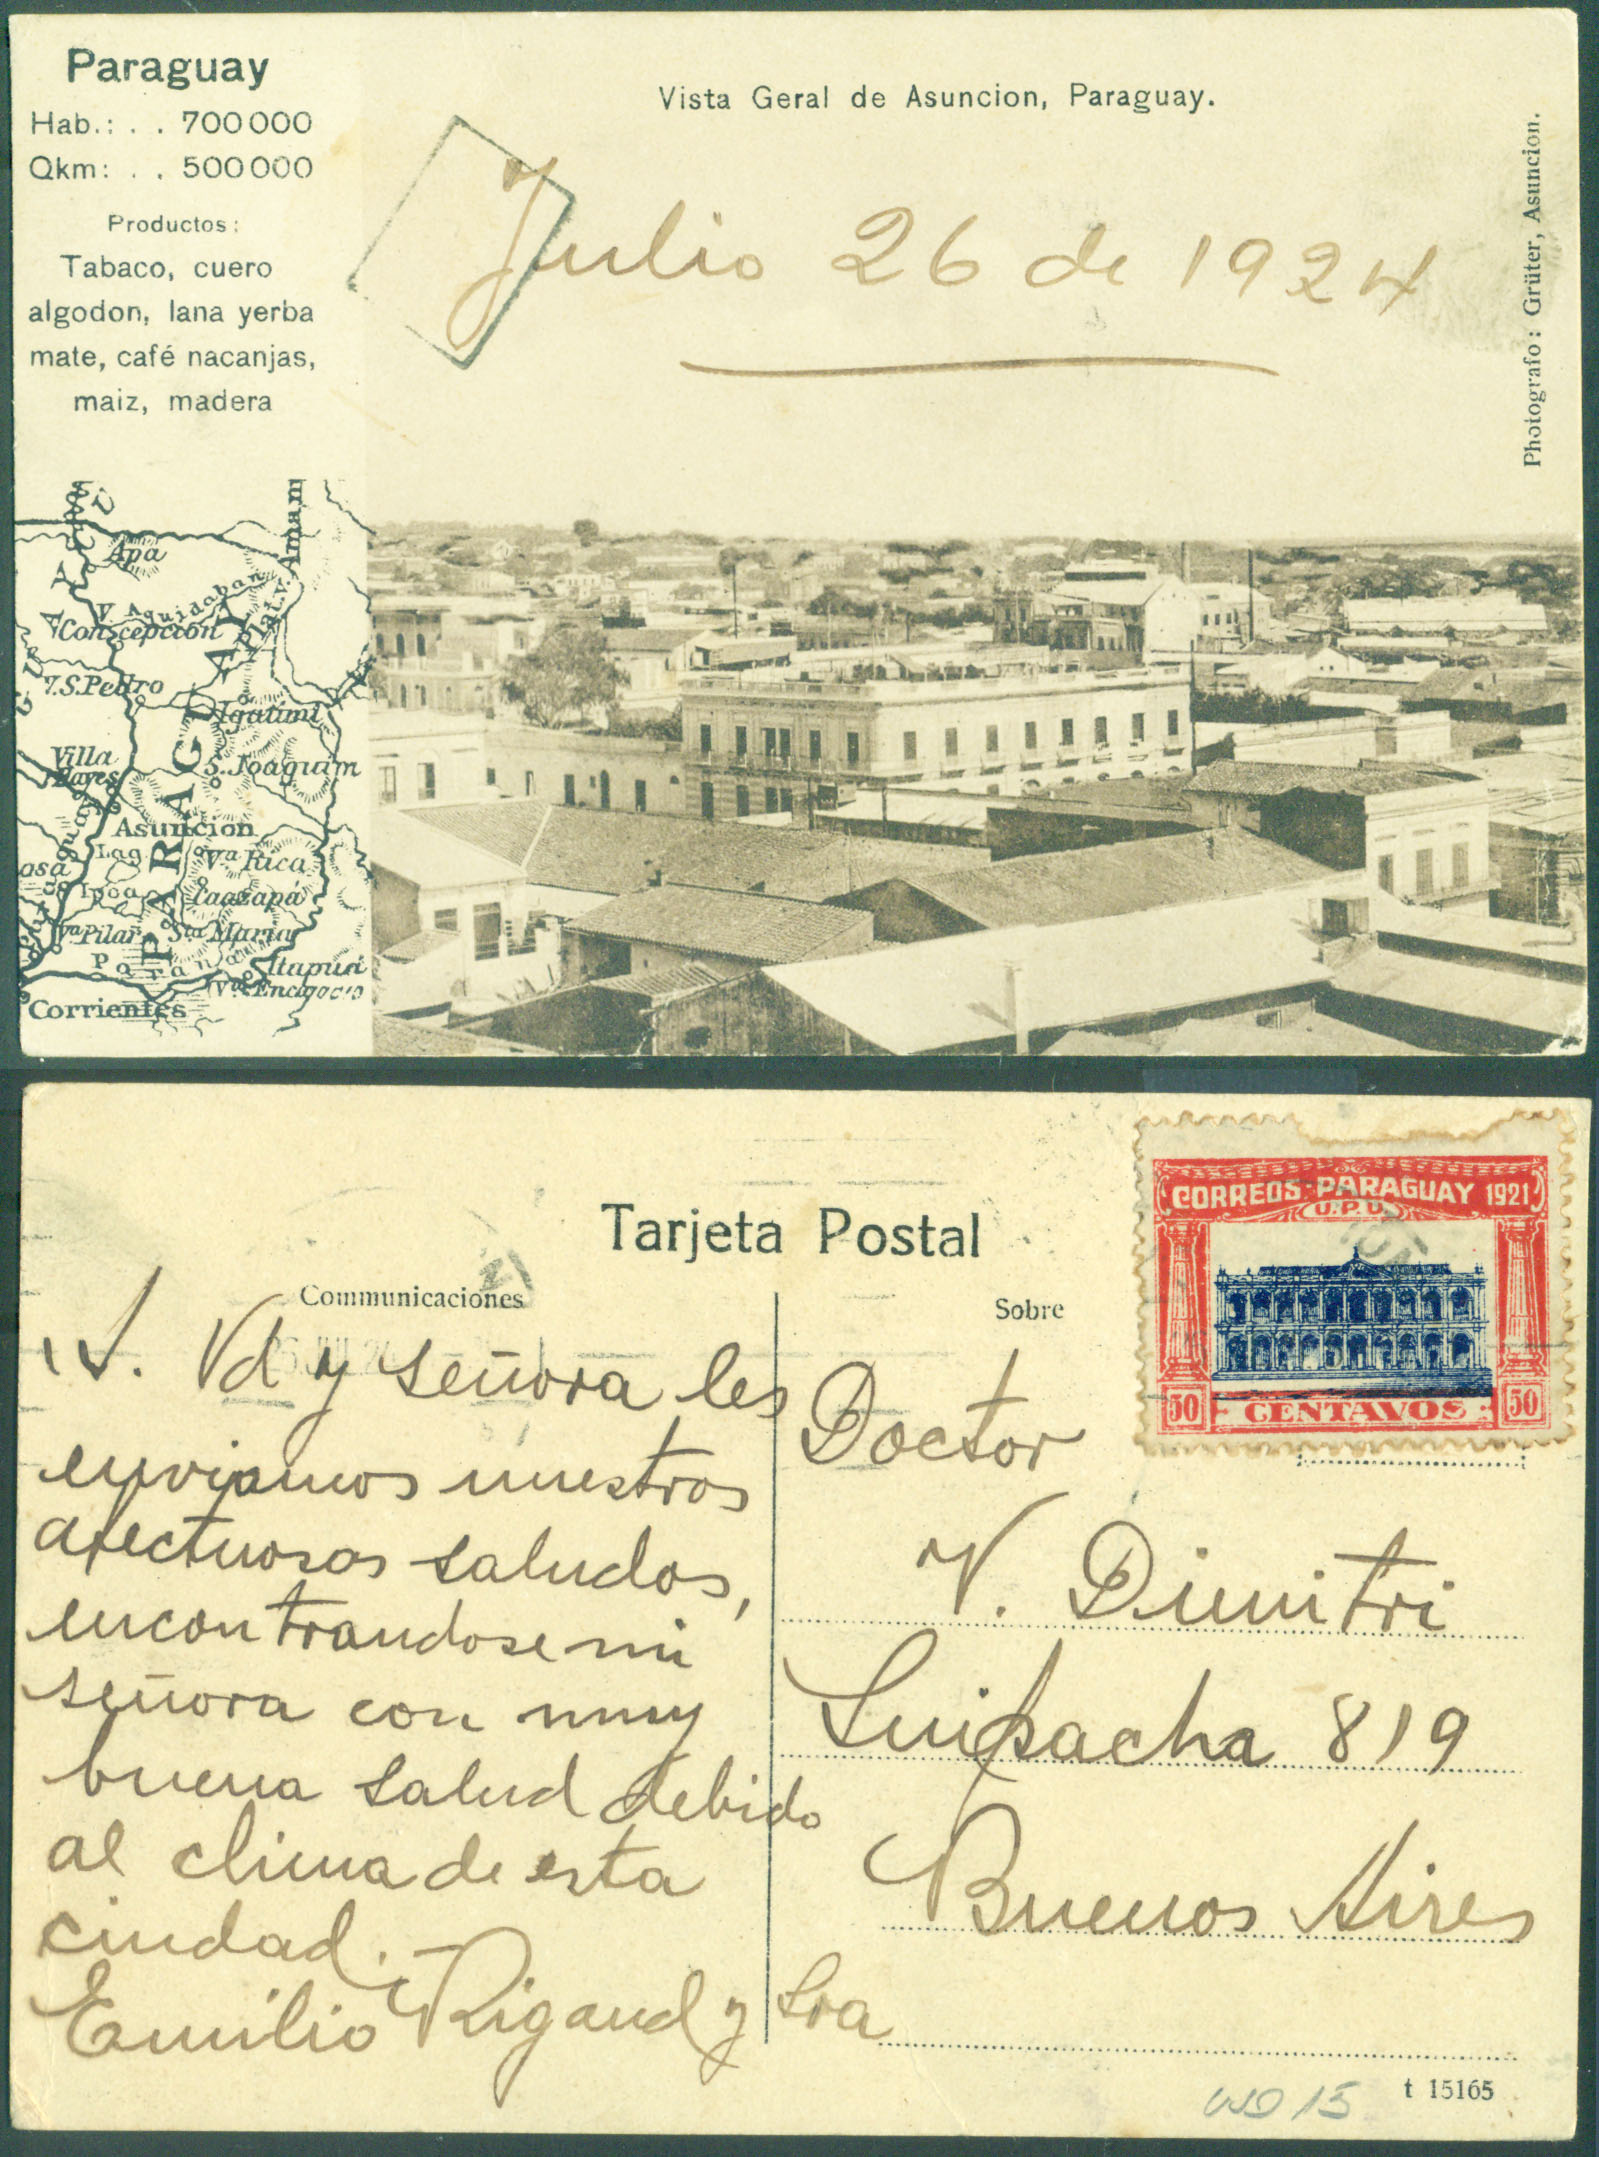 Paraguay
Hab.: . . 700000
Qkm: . . 500000
Productos:
Tabaco, cuero
algodon, lana yerba
mate, café nacanjas,
maiz, madera
Vista Geral de Asuncion, Paraguay.
Julio 26 de 1924
Photografo: Grüter, Asuncion.
Apa
V. Aquidaban
Concepcion
V.S. Pedro
Igatimi
Villa
Hayes
S. Joaquim
PARAGUAY
Asuncion
Lag.
Ipoa
Va Rica
Caazapá
Va Pilar
Sta Maria
Parana
Itapua
Corrientes
Tarjeta Postal
Communicaciones
Sobre
CORREOS PARAGUAY 1921
U.P.U.
50 CENTAVOS 50
Vd y señora les
enviamos nuestros
afectuosos saludos,
encontrandose mi
señora con muy
buena salud debido
al clima de esta
ciudad.
Emilio Rigaud y Sra
Doctor
V. Dimitri
Suipacha 819
Buenos Aires
USD 15
t 15165